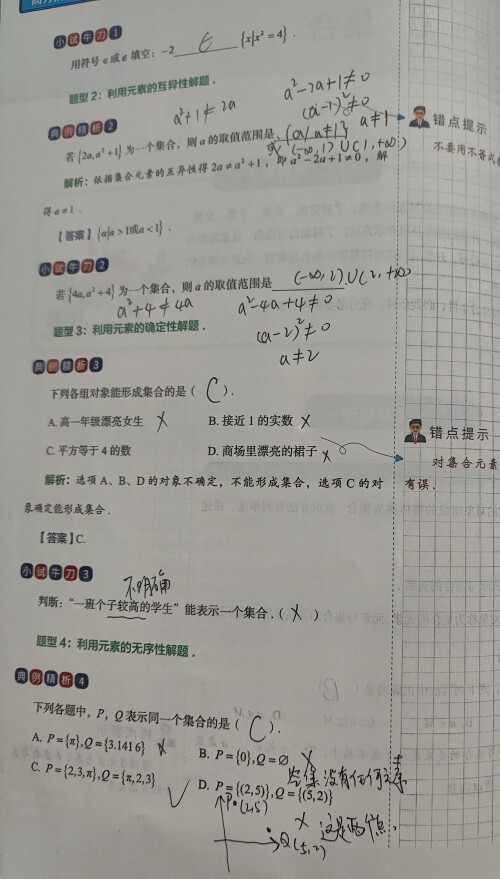 小试牛刀1
用符号∈或∉填空：-2 ∈ {x|x²=4}．
题型2：利用元素的互异性解题．
a²-2a+1≠0
a²+1≠2a
(a-1)²≠0
典例精析2
a≠1
错点提示
{a|a≠1}
不要用不等式
若{2a,a²+1}为一个集合，则a的取值范围是
或(-∞,1)∪(1,+∞)
解析：依据集合元素的互异性得2a≠a²+1，即a²-2a+1≠0，解
得a≠1．
【答案】{a|a>1或a<1}．
小试牛刀2
若{4a,a²+4}为一个集合，则a的取值范围是 (-∞,2)∪(2,+∞)
a²+4≠4a
a²-4a+4≠0
题型3：利用元素的确定性解题．
(a-2)²≠0
a≠2
典例精析3
下列各组对象能形成集合的是（ C ）．
A. 高一年级漂亮女生 ×
B. 接近1的实数 ×
错点提示
C. 平方等于4的数
D. 商场里漂亮的裙子 ×
对集合元素
有误．
解析：选项A、B、D的对象不确定，不能形成集合，选项C的对
象确定能形成集合．
【答案】C.
小试牛刀3
不明确
判断：“一班个子较高的学生”能表示一个集合．（ × ）
题型4：利用元素的无序性解题．
典例精析4
下列各题中，P，Q表示同一个集合的是（ C ）．
A. P={π},Q={3.1416} ×
B. P={0},Q=∅ ×
空集没有任何元素
C. P={2,3,π},Q={π,2,3} ✓
D. P={(2,5)},Q={(5,2)}
P(2,5)
× 这是两个点．
Q(5,2)